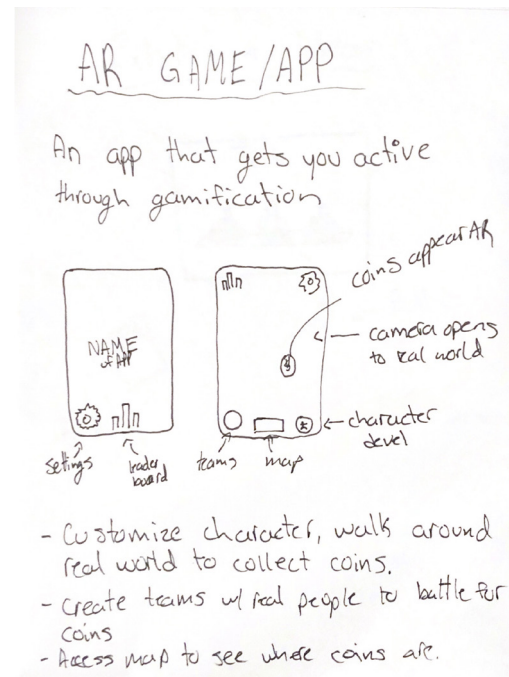 AR GAME/APP
An app that gets you active
through gamification
coins appear AR
NAME
of APP
camera opens
to real world
character
devel
settings
leader
board
teams
map
- Customize character, walk around
real world to collect coins.
- Create teams w/ real people to battle for
coins
- Access map to see where coins are.